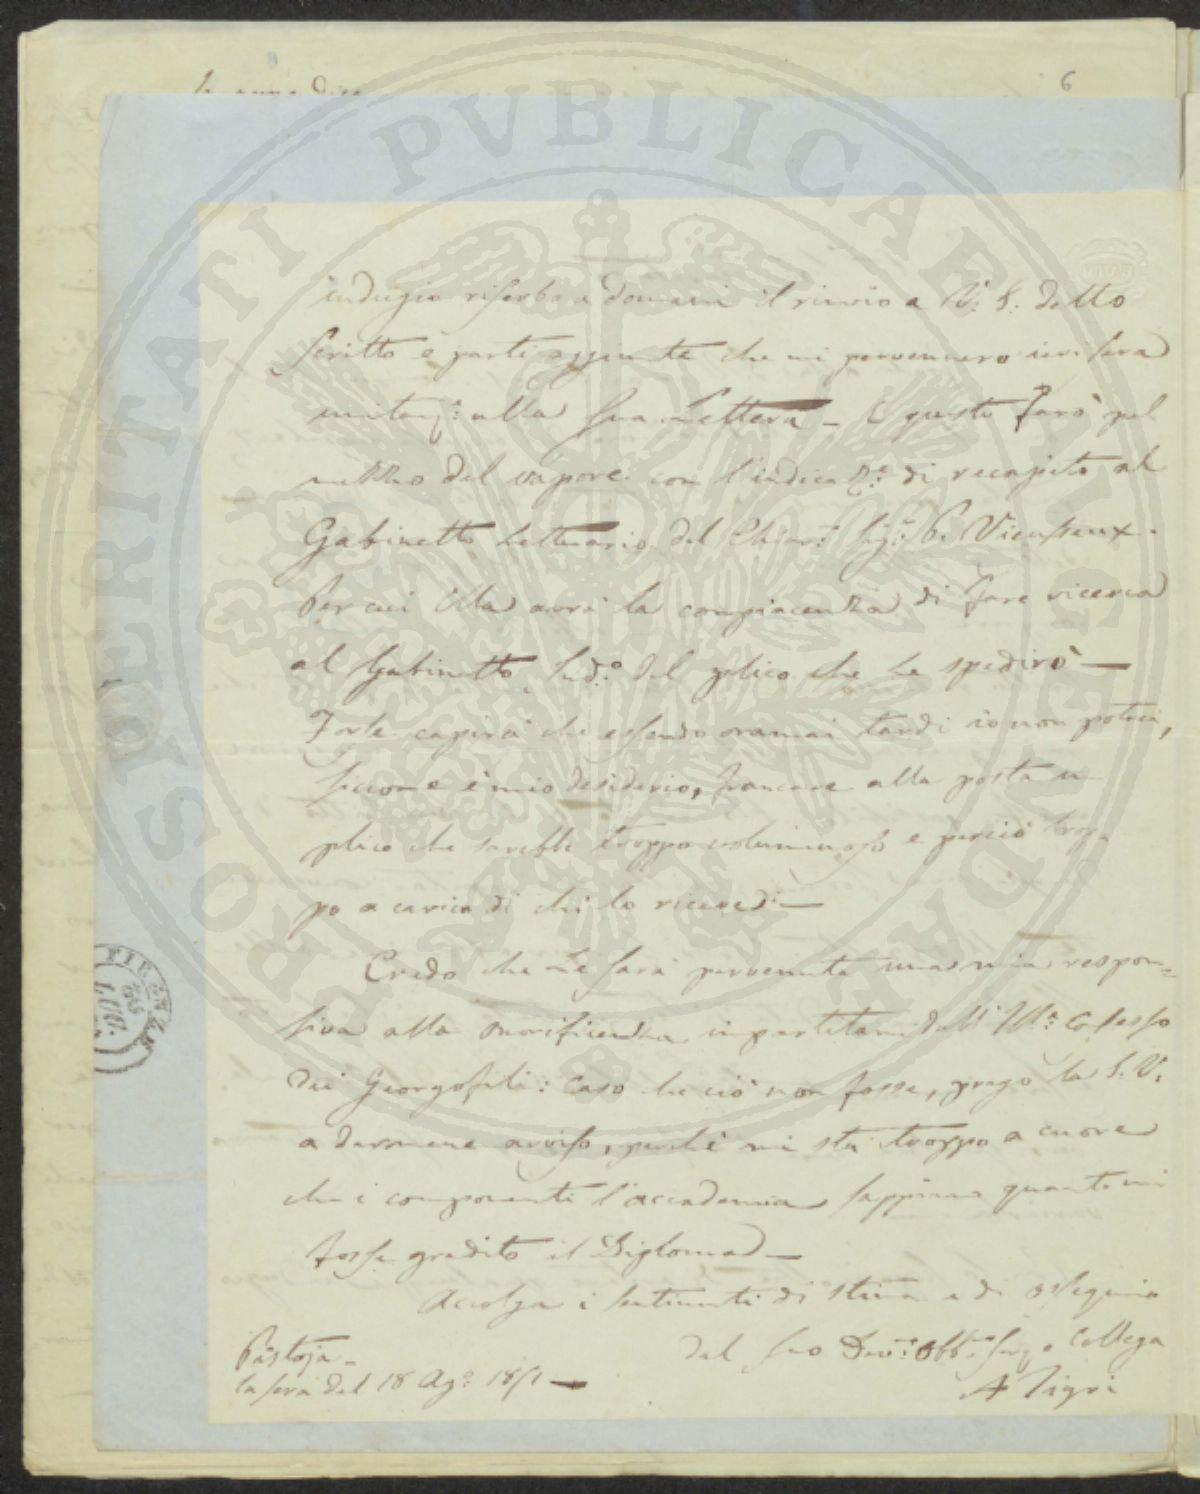 6
indugio riserbo a domani il rinvio a V: S: detto
scritto e parti aggiunte che mi pervennero ieri sera
unitaṃ: alla sua Lettera – E questo farò pel
mezzo del vapore con l'indicaz:e di recapito al
Gabinetto Letterario del Chiar: Sig: P. Vieusseux.
Per cui Ella avrà la compiacenza di fare ricerca
al Gabinetto sud:o del plico che Le spedirò —
Forte capirà che essendo oramai tardi io non potrei,
siccome è mio desiderio, francare alla posta un
plico che sarebbe troppo voluminoso e perciò trop-
po a carico di chi lo riceve di —
Credo che Le sarà pervenuta una mia respon=
siva alla onorificenza impartitami dall' Ill: Consesso
dei Georgofili: Caso che ciò non fosse, prego la S. V.
a darmene avviso, perché mi sta troppo a cuore
che i componenti l'accademia sappiano quanto mi
fosse gradito il Diploma —
Accolga i sentimenti di stima e di ossequio
dal suo Dev: Obb: Serv e Collega
A Tigri
Pistoja –
la sera del 18 Ag:o 1851 —
FIRENZE
PROSPERITATI PUBLICAE AUGENDAE